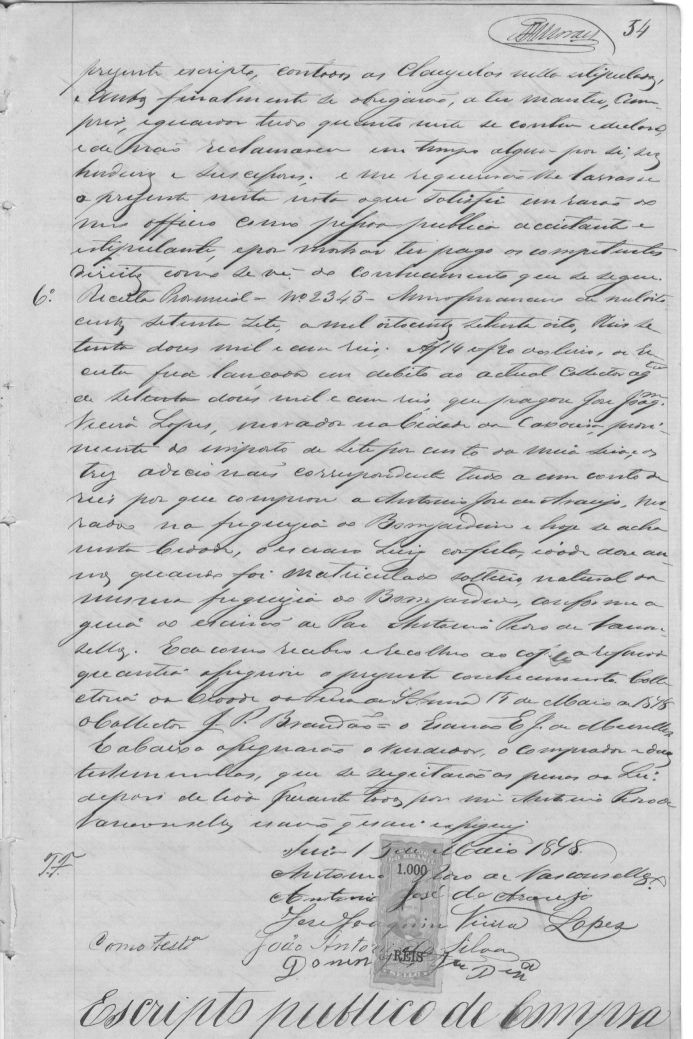 34
presente escripto, com todas as clausulas nella estipuladas,
e ambos finalmente se obrigarão, a ter manter, Cum-
prir, e guardar tudo quanto neste se contem e declara,
e de não reclamarem em tempo algum por si, seus
herdeiros e sucessores; e me requererão lhe lavrasse
a presente nesta nota o que satisfiz em razão do
meu officio como pessoa publica acceitante e
estipulante, e por mostrar ter pago os competentes
direitos como se vê do conhecimento que se segue.
6º Receita Provincial = Nº 2345 - Anno financeiro de mil oito
centos setenta sete, a mil oitocentos setenta oito, Reis se-
tenta dous mil e cem reis. Af 14 do livro de Re
ceita fica lançado em debito ao actual Collector a qtia
de setenta dous mil e cem reis, que pagou José Joaqm
Vieira Lopes, morador na Cidade da Caxoeira, provi-
niente do imposto de sete por cento da meia siza, e os
trez adicionais correspondente tudo a um conto de
reis por que comprou a Antonio José de Araujo, mo-
rador na freguezia do Bomjardim e hoje se acha
nesta Cidade, o escravo Luiz, confula, idade doze an-
nos quando foi matriculado solteiro, natural da
mesma freguezia do Bomjardim, conforme a
guia do escrivão de Paz Antonio Piro de Vascon-
sellos. E de como recebeu e recolheu ao cofre a referida
quantia assignou o presente conhecimento Colle
ctoria da Cidade da Feira de S. Anna 15 de Maio de 1878
O Collector J. P. Brandão = o Escrivão E. J. de Meirelles
E abaixo assignarão o vendedor, o comprador e duas
testemunhas, que se sugeitarão as penas da Lei:
depois de lido perante todos por mim Antonio Piro de
Vasconsellos escrivão q escrevi e assignei.
Feira 15 de Maio 1878
Antonio Piro de Vasconsellos
1.000
Antonio José de Araujo
José Joaquim Vieira Lopes
Como testa João Antonio da Silva
REIS
Escripto publico de Compra